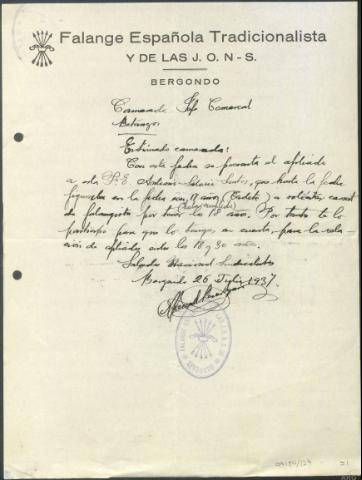 Falange Española Tradicionalista
Y DE LAS J. O. N - S.
BERGONDO
Camarada Jefe Comarcal
Betanzos
Estimado camarada:
Con esta fecha se presenta el afiliado
a esta P. E. Santos, que hasta la fecha
figuraba en la ficha con 17 años (Cadete) a solicitar carnet
de falangista por tener los 18 años. Por tanto te lo
participo para que lo tengas en cuenta, para la rela-
ción de afiliados entre los 18 y 30 años.
Saludos Nacional Sindicalistas
Bergondo 26 Julio 1937.
FALANGE ESPAÑOLA
BERGONDO